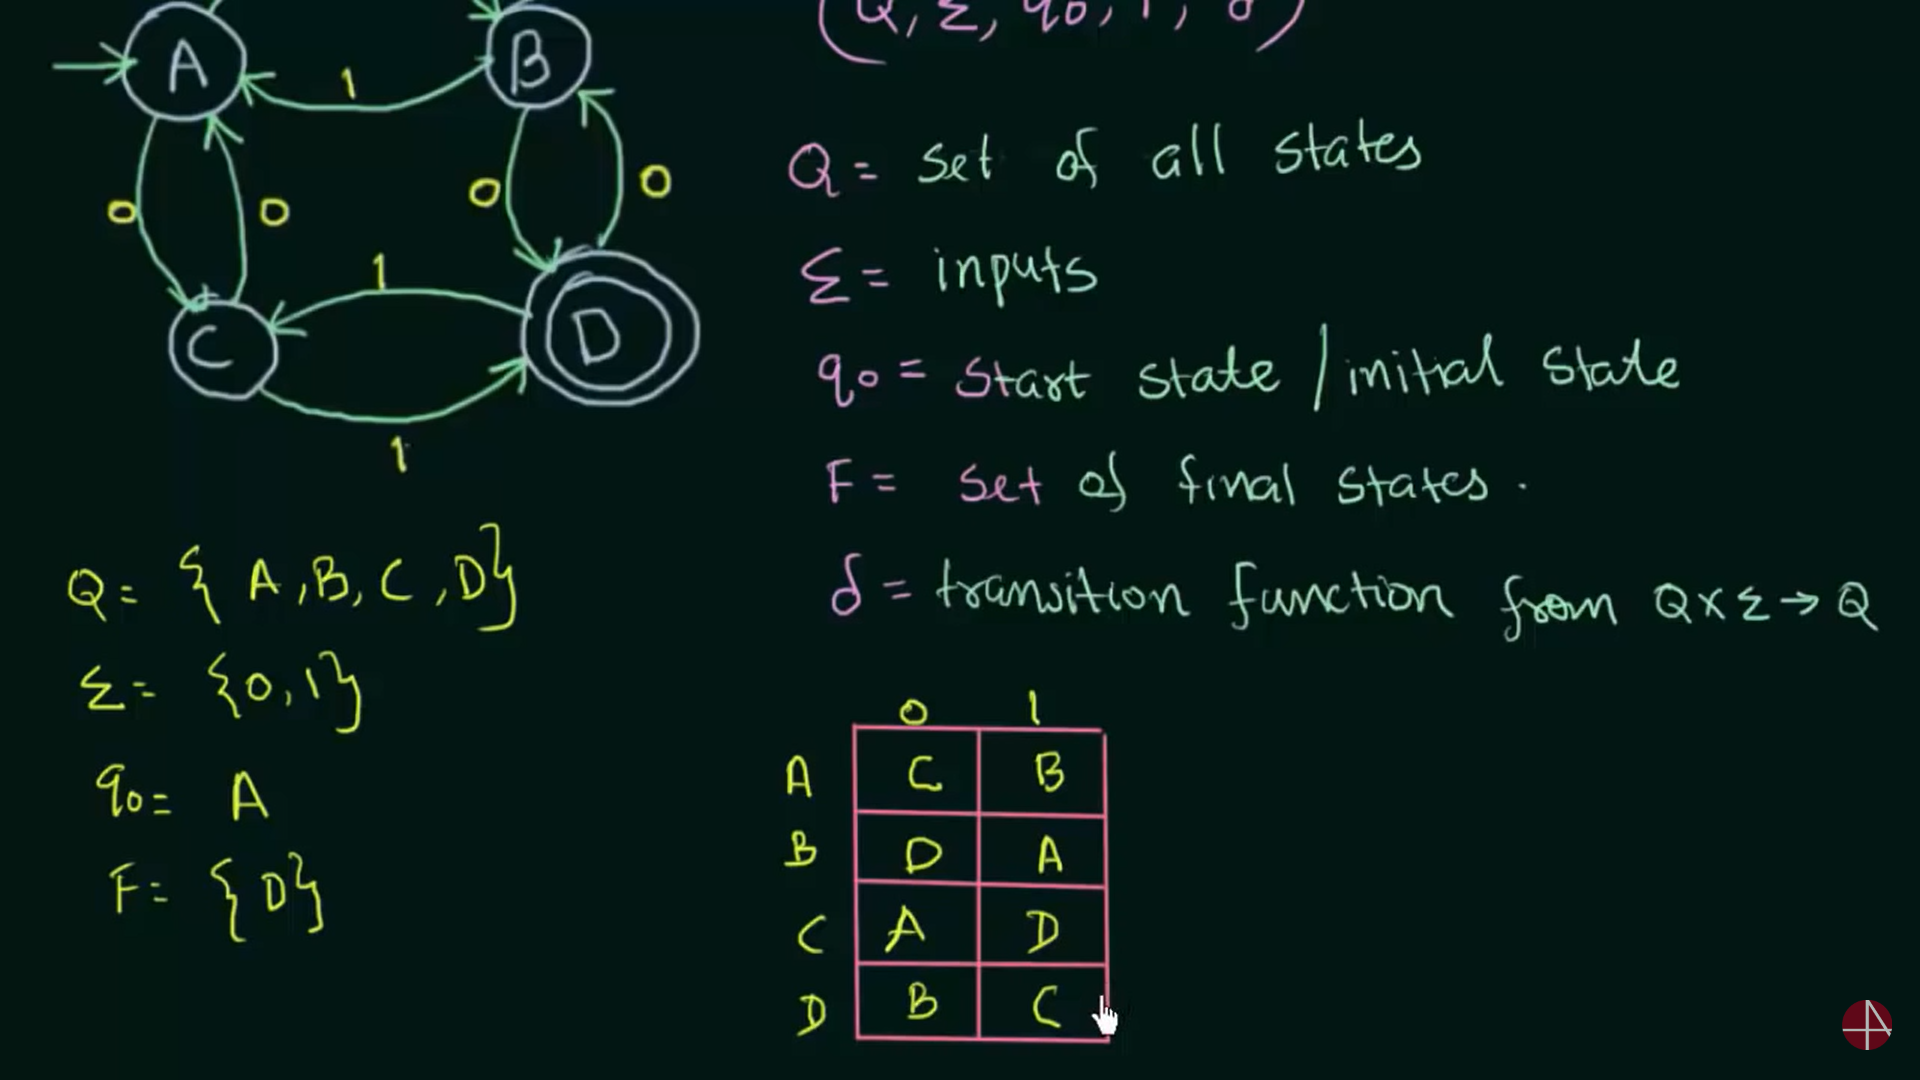 (Q, Σ, q0, F, δ)
A
B
1
0
0
0
0
1
C
D
1
Q = set of all states
Σ = inputs
q0 = start state / initial state
F = set of final states.
δ = transition function from Q x Σ → Q
Q = { A, B, C, D}
Σ = {0, 1}
q0 = A
F = { D}
0 1
A C B
B D A
C A D
D B C